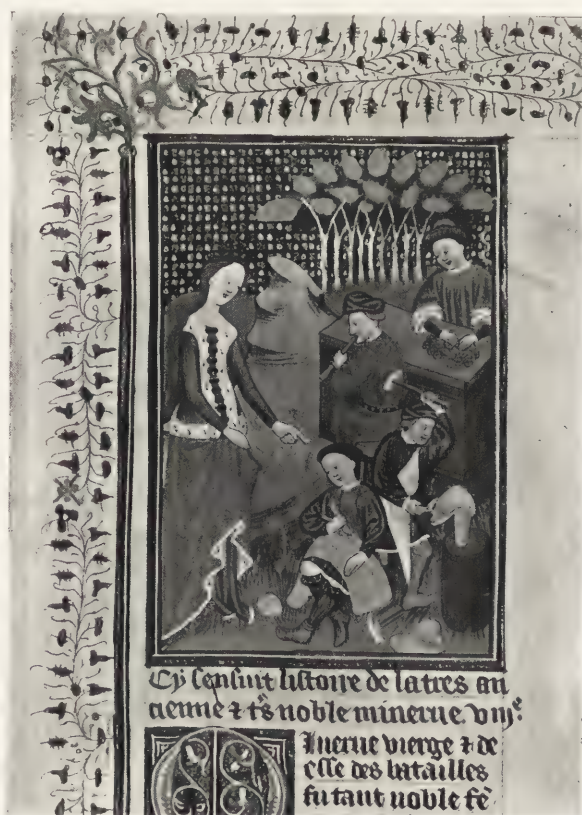 Cy sensuit listoire de latres an
cienne & tˢ noble minerue. viijᵉ.
Inerue vierge & de
esse des batailles
fu tant noble fē